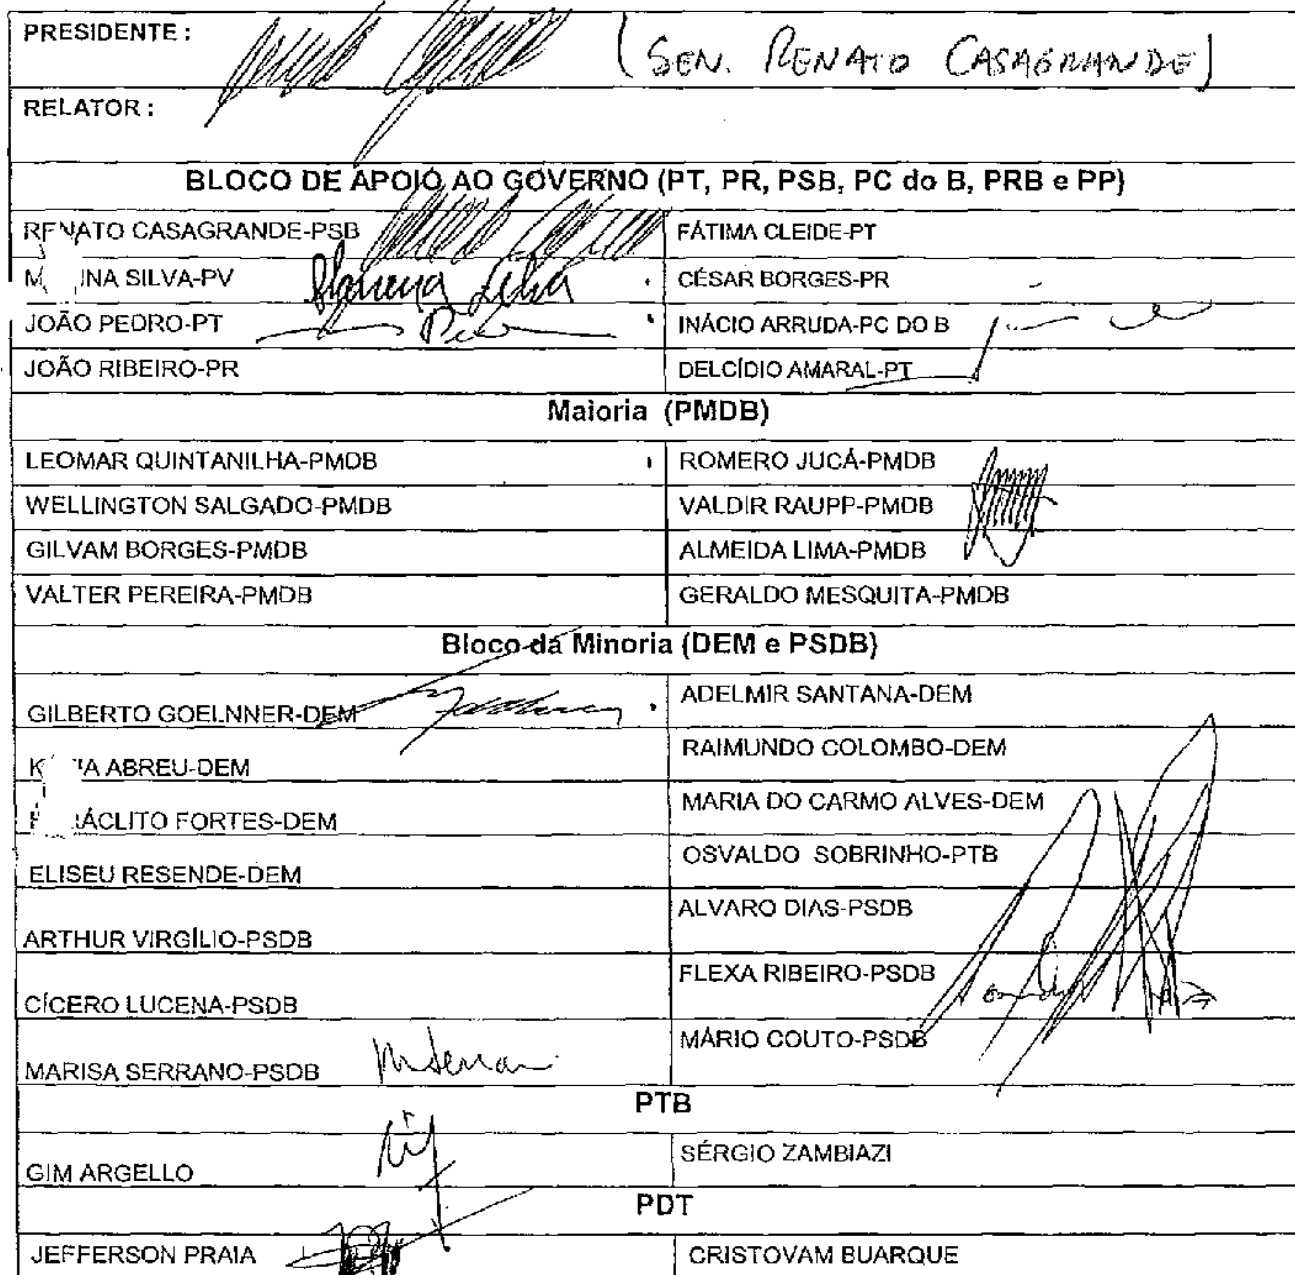 PRESIDENTE : (SEN. RENATO CASAGRANDE)
RELATOR :
BLOCO DE APOIO AO GOVERNO (PT, PR, PSB, PC do B, PRB e PP)
RENATO CASAGRANDE-PSB FÁTIMA CLEIDE-PT
M INA SILVA-PV Marina Silva CÉSAR BORGES-PR
JOÃO PEDRO-PT INÁCIO ARRUDA-PC DO B
JOÃO RIBEIRO-PR DELCÍDIO AMARAL-PT
Maioria (PMDB)
LEOMAR QUINTANILHA-PMDB ROMERO JUCÁ-PMDB
WELLINGTON SALGADO-PMDB VALDIR RAUPP-PMDB
GILVAM BORGES-PMDB ALMEIDA LIMA-PMDB
VALTER PEREIRA-PMDB GERALDO MESQUITA-PMDB
Bloco da Minoria (DEM e PSDB)
GILBERTO GOELNNER-DEM ADELMIR SANTANA-DEM
K IA ABREU-DEM RAIMUNDO COLOMBO-DEM
ÁCLITO FORTES-DEM MARIA DO CARMO ALVES-DEM
ELISEU RESENDE-DEM OSVALDO SOBRINHO-PTB
ARTHUR VIRGÍLIO-PSDB ALVARO DIAS-PSDB
CÍCERO LUCENA-PSDB FLEXA RIBEIRO-PSDB
MARISA SERRANO-PSDB MÁRIO COUTO-PSDB
PTB
GIM ARGELLO SÉRGIO ZAMBIAZI
PDT
JEFFERSON PRAIA CRISTOVAM BUARQUE